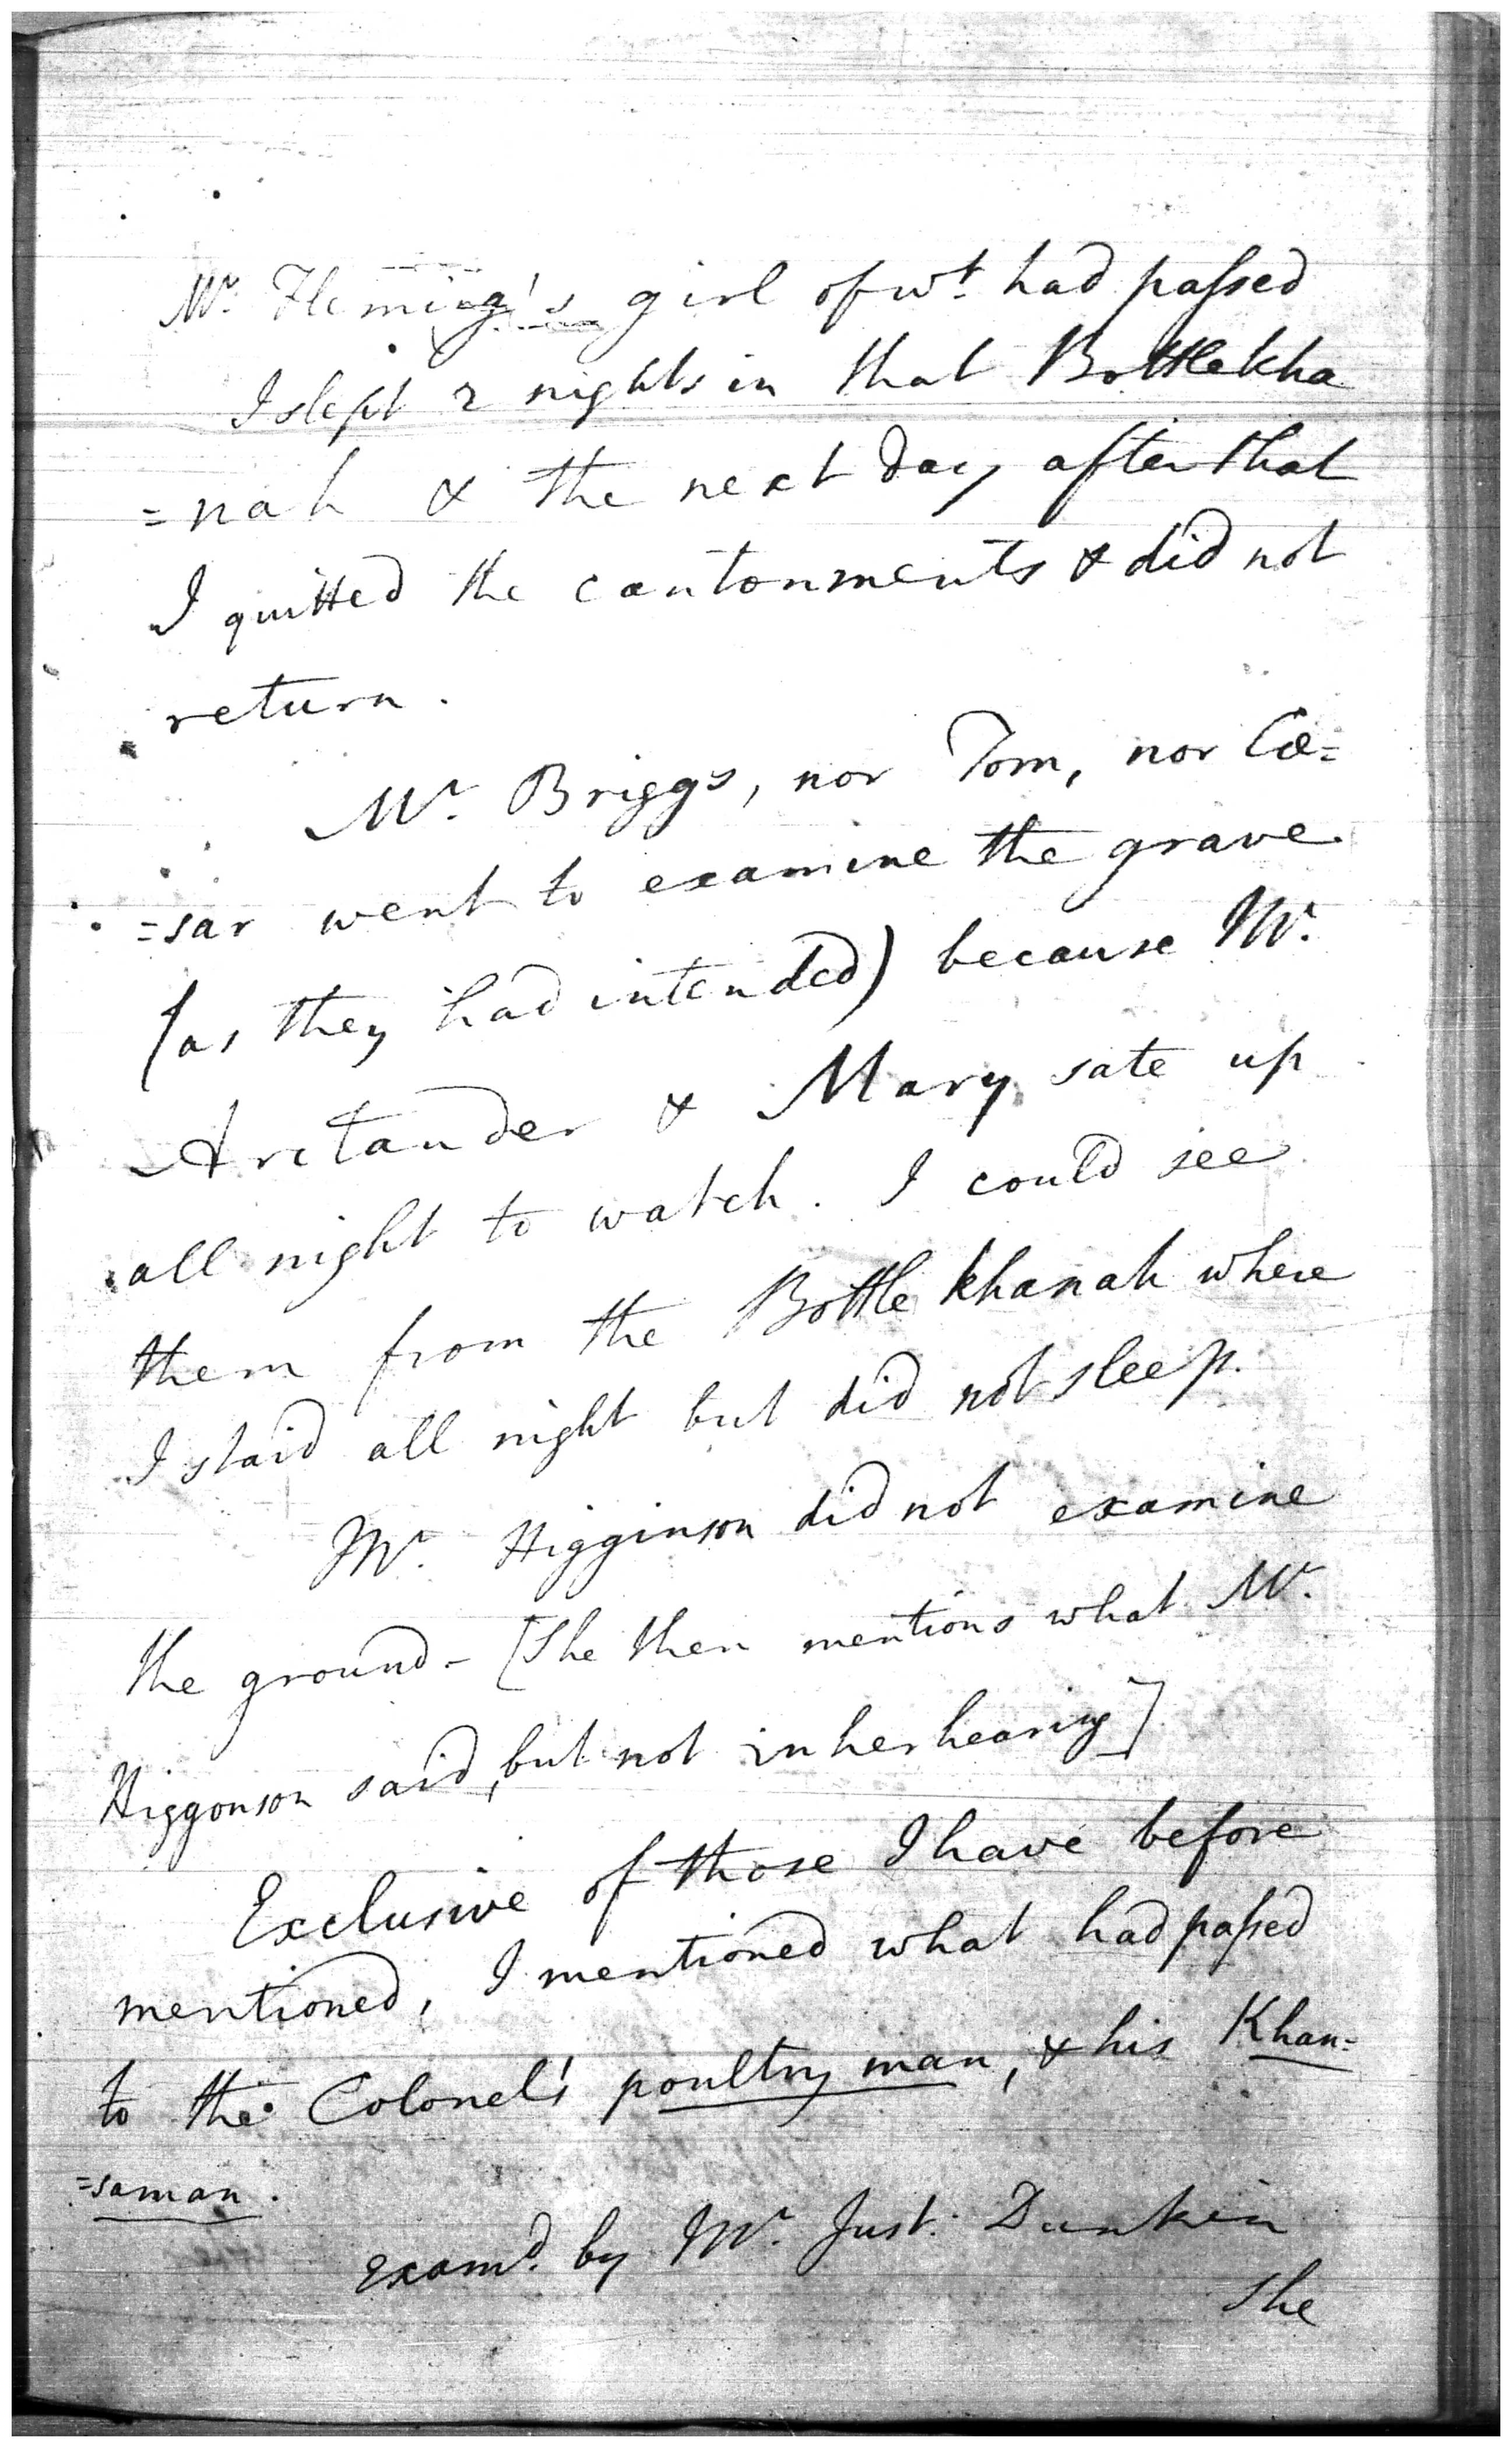 Mr. Fleming's girl of wt. had passed
I slept 2 nights in that Bottlekha
=nah & the next day after that
I quitted the cantonments & did not
return.
Mr. Briggs, nor Tom, nor Cæ=
=sar went to examine the grave
(as they had intended) because Mr.
Arctander & Mary sate up
all night to watch. I could see
them from the Bottle khanah where
I staid all night but did not sleep.
Mr. Higginson did not examine
the ground - [She then mentions what Mr.
Higgonson said, but not in her hearing]
Exclusive of those I have before
mentioned, I mentioned what had passed
to the Colonel's poultry man, & his Khan=
=saman.
Examd. by Mr. Just. Dunkin
She